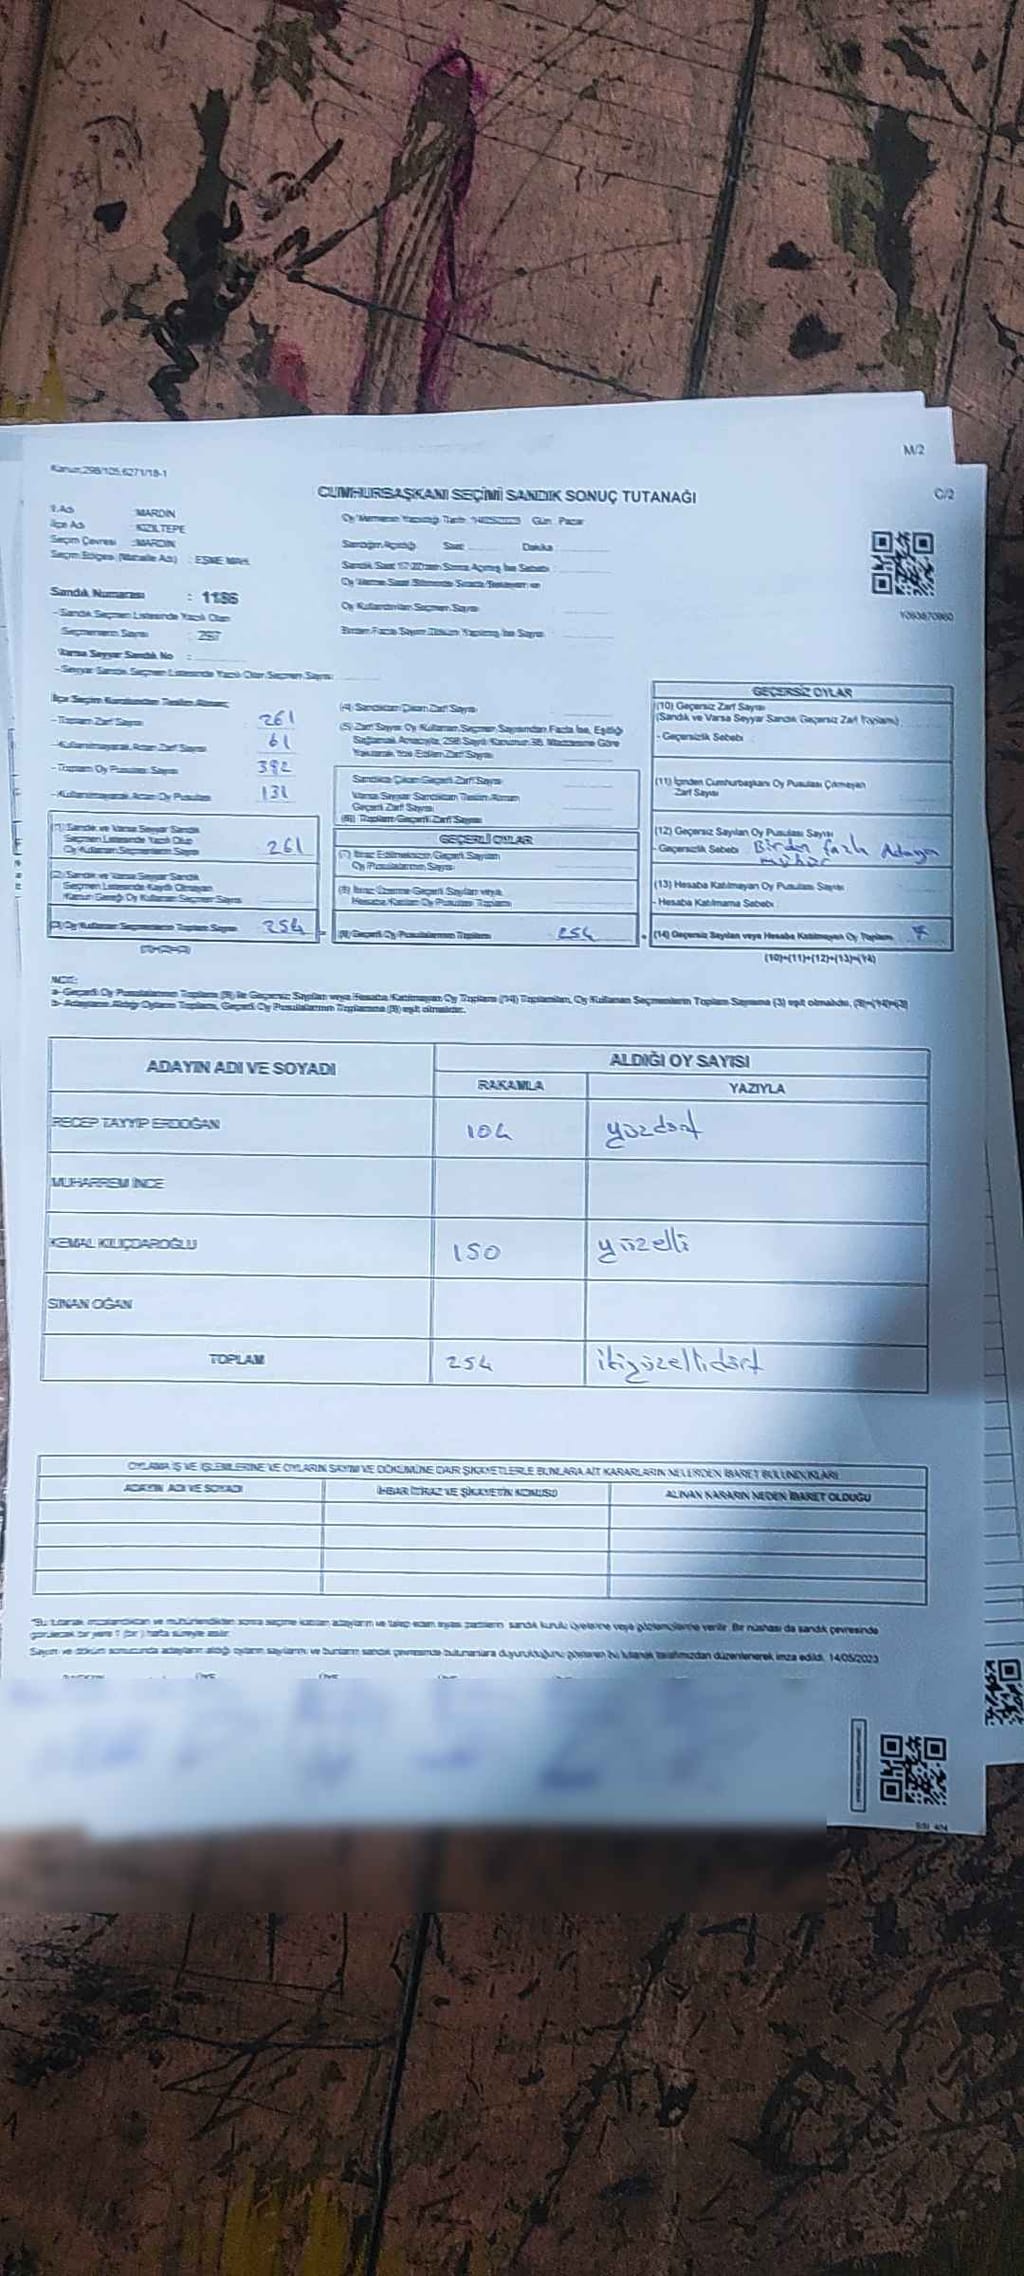 Kanun:298/105,6271/18-1
M/2
C/2
CUMHURBAŞKANI SEÇİMİ SANDIK SONUÇ TUTANAĞI
İl Adı : MARDİN
İlçe Adı : KIZILTEPE
Seçim Çevresi : MARDİN
Seçim Bölgesi (Mahalle Adı) : EŞME MAH.
Sandık Numarası : 1186
- Sandık Seçmen Listesinde Yazılı Olan
Seçmenlerin Sayısı
Varsa Seyyar Sandık No :
- Seyyar Sandık Seçmen Listesinde Yazılı Olan Seçmen Sayısı
Oy Vermenin Yapıldığı Tarih Gün Pazar
Sandığın Açıldığı Saat Dakika
Oy Kullandırılan Seçmen Sayısı
Birden Fazla Sayım Döküm Yapılmış İse Sayısı
İlçe Seçim Kurulundan Teslim Alınan;
- Toplam Zarf Sayısı 261
- Kullanılmayarak Artan Zarf Sayısı 61
- Toplam Oy Pusulası Sayısı 392
- Kullanılmayarak Artan Oy Pusulası 131
(1) Sandık ve Varsa Seyyar Sandık
Seçmen Listesinde Yazılı Olup
Oy Kullanan Seçmenlerin Sayısı 261
(2) Sandık ve Varsa Seyyar Sandık
Seçmen Listesinde Kayıtlı Olmayan
Kanun Gereği Oy Kullanan Seçmen Sayısı
(3) Oy Kullanan Seçmenlerin Toplam Sayısı 254
(4) Sandıktan Çıkan Zarf Sayısı
(5) Zarf Sayısı Oy Kullanan Seçmen Sayısından Fazla İse, Eşitliği
Sağlamak Amacıyla, 298 Sayılı Kanunun 98. Maddesine Göre
Yakılarak Yok Edilen Zarf Sayısı
Sandıkta Çıkan Geçerli Zarf Sayısı
Varsa Seyyar Sandıktan Teslim Alınan
Geçerli Zarf Sayısı
(6) Toplam Geçerli Zarf Sayısı
GEÇERLİ OYLAR
(7) İtiraz Edilmeksizin Geçerli Sayılan
Oy Pusulalarının Sayısı
(8) İtiraz Üzerine Geçerli Sayılan veya
Hesaba Katılan Oy Pusulası Toplamı
(9) Geçerli Oy Pusulalarının Toplamı 254
GEÇERSİZ OYLAR
(10) Geçersiz Zarf Sayısı
(Sandık ve Varsa Seyyar Sandık Geçersiz Zarf Toplamı)
- Geçersizlik Sebebi
(11) İçinden Cumhurbaşkanı Oy Pusulası Çıkmayan
Zarf Sayısı
(12) Geçersiz Sayılan Oy Pusulası Sayısı
- Geçersizlik Sebebi Birden fazla Adaya
mühür
(13) Hesaba Katılmayan Oy Pusulası Sayısı
- Hesaba Katılmama Sebebi
(14) Geçersiz Sayılan veya Hesaba Katılmayan Oy Toplamı 7
(10)+(11)+(12)+(13)=(14)
NOT:
a- Geçerli Oy Pusulalarının Toplamı (9) ile Geçersiz Sayılan veya Hesaba Katılmayan Oy Toplamı (14) Toplamları, Oy Kullanan Seçmenlerin Toplam Sayısına (3) eşit olmalıdır, (9)+(14)=(3)
b- Adayların Aldığı Oyların Toplamı, Geçerli Oy Pusulalarının Toplamına (9) eşit olmalıdır.
ADAYIN ADI VE SOYADI
ALDIĞI OY SAYISI
RAKAMLA YAZIYLA
RECEP TAYYİP ERDOĞAN 104 yüzdört
MUHARREM İNCE
KEMAL KILIÇDAROĞLU 150 yüzelli
SİNAN OĞAN
TOPLAM 254 ikiyüzellidört
OYLAMA İŞ VE İŞLEMLERİNE VE OYLARIN SAYIM VE DÖKÜMÜNE DAİR ŞİKAYETLERLE BUNLARA AİT KARARLARIN NELERDEN İBARET BULUNDUKLARI
ADAYIN ADI VE SOYADI İHBAR İTİRAZ VE ŞİKAYETİN KONUSU ALINAN KARARIN NEDEN İBARET OLDUĞU
"Bu tutanak imzalandıktan ve mühürlendikten sonra seçime katılan adayların ve talep eden siyasi partilerin sandık kurulu üyelerine veya gözlemcilerine verilir. Bir nüshası da sandık çevresinde
görülecek bir yere 1 (bir) hafta süreyle asılır.
Sayım ve döküm sonucunda adayların aldığı oyların sayılarını ve bunların sandık çevresinde bulunanlara duyurulduğunu gösteren bu tutanak tarafımızdan düzenlenerek imza edildi. 14/05/2023